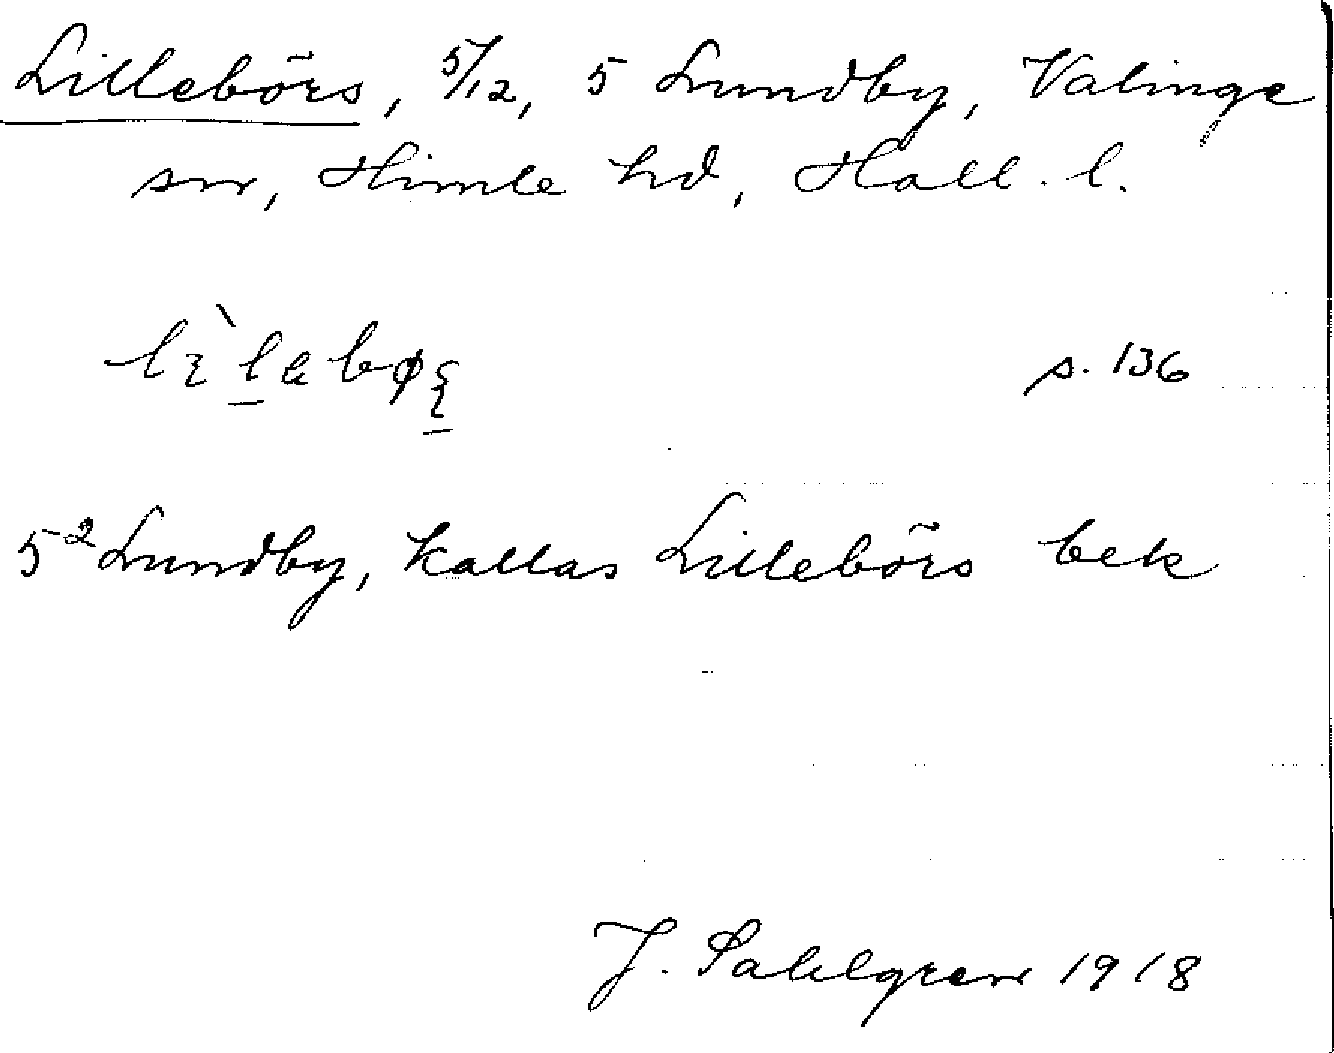 Lillebörs, 5/12, 5 Lundby, Valinge
sn, Himle hd, Hall. l.
s. 136
5² Lundby, kallas Lillebörs bek
J. Sahlgren 1918